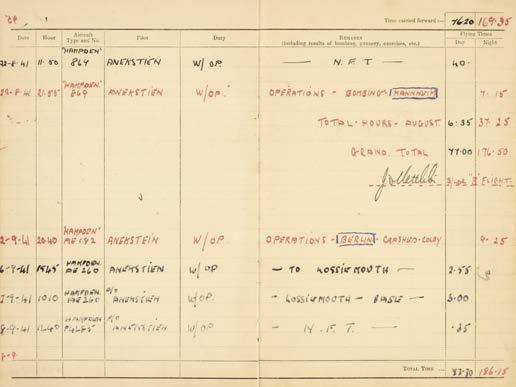 Time carried forward :— 76·20 169·35
Date Hour Aircraft Type and No. Pilot Duty Remarks (including results of bombing, gunnery, exercises, etc.) Flying Times Day Night
22-8-41 11·50 "HAMPDEN" 869 ANEKSTIEN W/OP. — N.F.T — 40·
22-8-41 21·55 "HAMPDEN" 869 ANEKSTIEN W/OP. OPERATIONS - BOMBING - MANNHEIM 7·15
TOTAL·HOURS - AUGUST 6·35 37·25
GRAND TOTAL 77·00 176·50
"B" FLIGHT.
2-9-41 20·40 "HAMPDEN" AE 192 ANEKSTEIN W/OP. OPERATIONS - BERLIN - CRASHED - COLBY 9·25
6-9-41 1545 HAMPDEN. AE 260 ANEKSTIEN W/OP — TO LOSSIEMOUTH — 2·55
7-9-41 1010 HAMPDEN AE 260 P/O ANEKSTIEN W/OP. — LOSSIEMOUTH — BASE — 3·00
8-9-41 1240 HAMPDEN P/O ANEKSTIEN W/OP — N.F.T. — ·35
8-9
Total Time :— 83·30 186·15